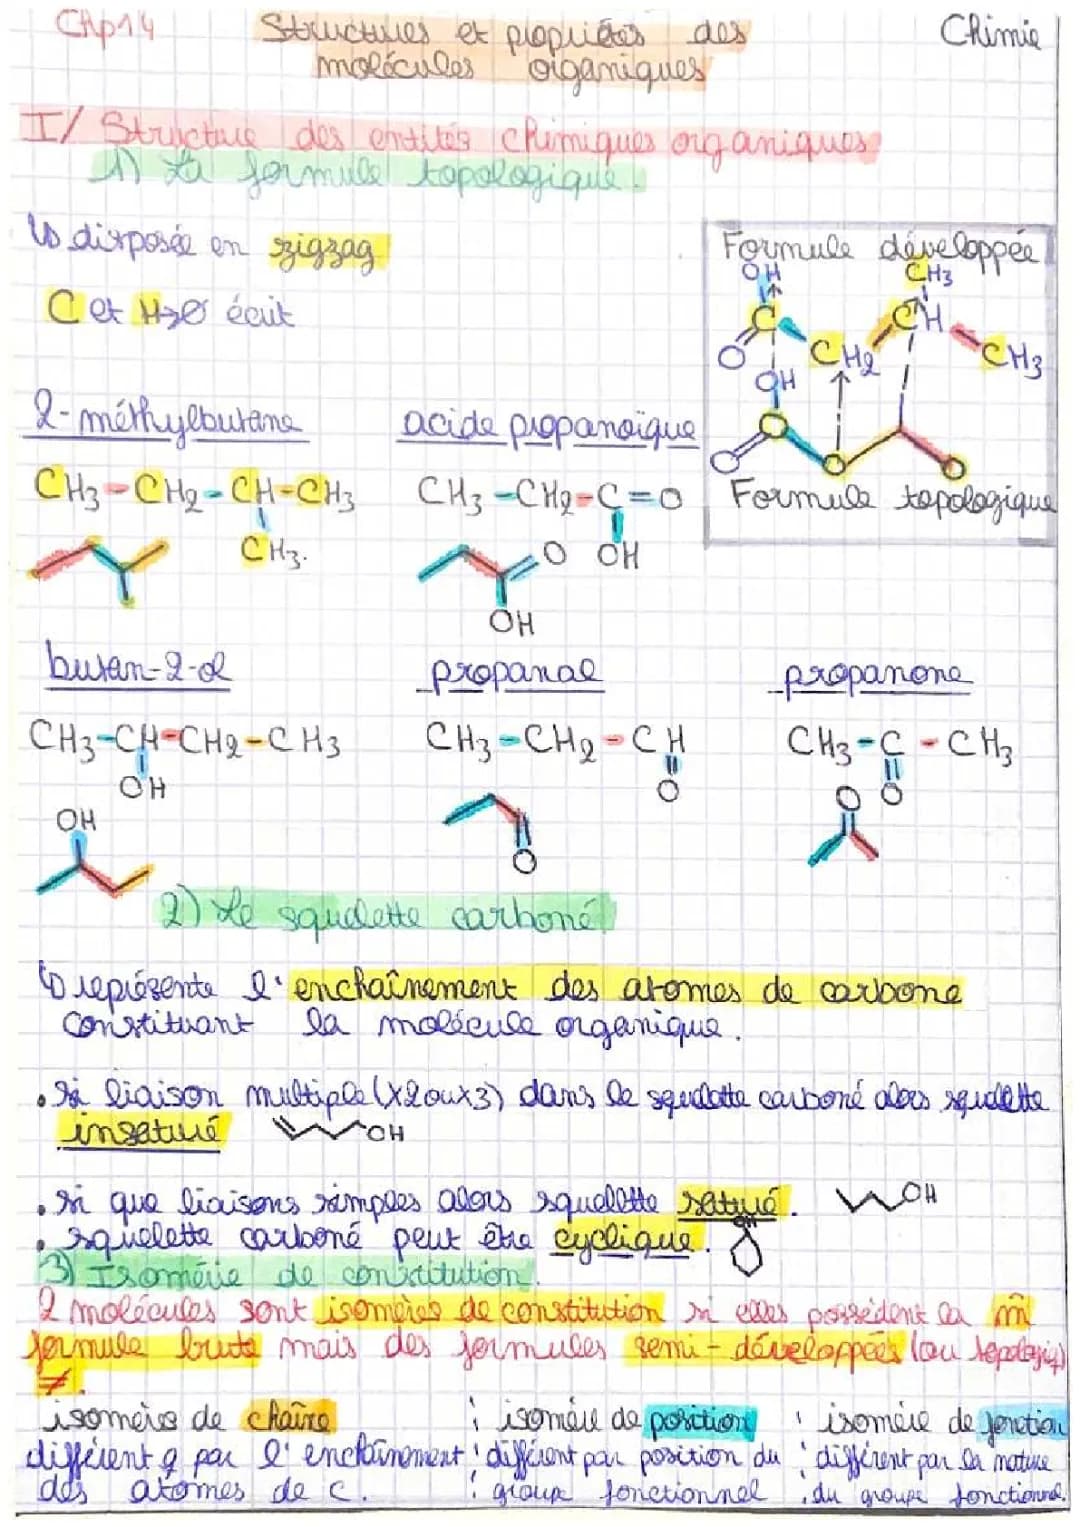 Chp14
Structures et propriétés des
molécules organiques
Chimie
I/ Structure des entités chimiques organiques
1) La formule topologique.
↳ disposée en zigzag
C et H → Ø écrit
Formule développée
OH
CH3
C
CH
O
CH2
CH3
OH
Formule topologique
2-méthylbutane
CH3-CH2-CH-CH3
CH3.
acide propanoïque
CH3-CH2-C=O
OH
O
OH
butan-2-ol
CH3-CH-CH2-CH3
OH
OH
propanal
CH3-CH2-CH
O
O
propanone
CH3-C-CH3
O
O
2) Le squelette carboné
↳ représente l'enchaînement des atomes de carbone
constituant la molécule organique.
• si liaison multiple (x2 ou x3) dans le squelette carboné alors squelette
insaturé
OH
• si que liaisons simples alors squelette saturé.
OH
• squelette carboné peut être cyclique.
OH
3) Isomérie de constitution.
2 molécules sont isomères de constitution si elles possèdent la m̂
formule brute mais des formules semi-développées (ou topologiq)
≠.
isomère de chaîne
différent q par l'enchaînement
des atomes de C.
isomère de position
différent par position du
groupe fonctionnel
isomère de fonction
différent par la nature
du groupe fonctionnel.